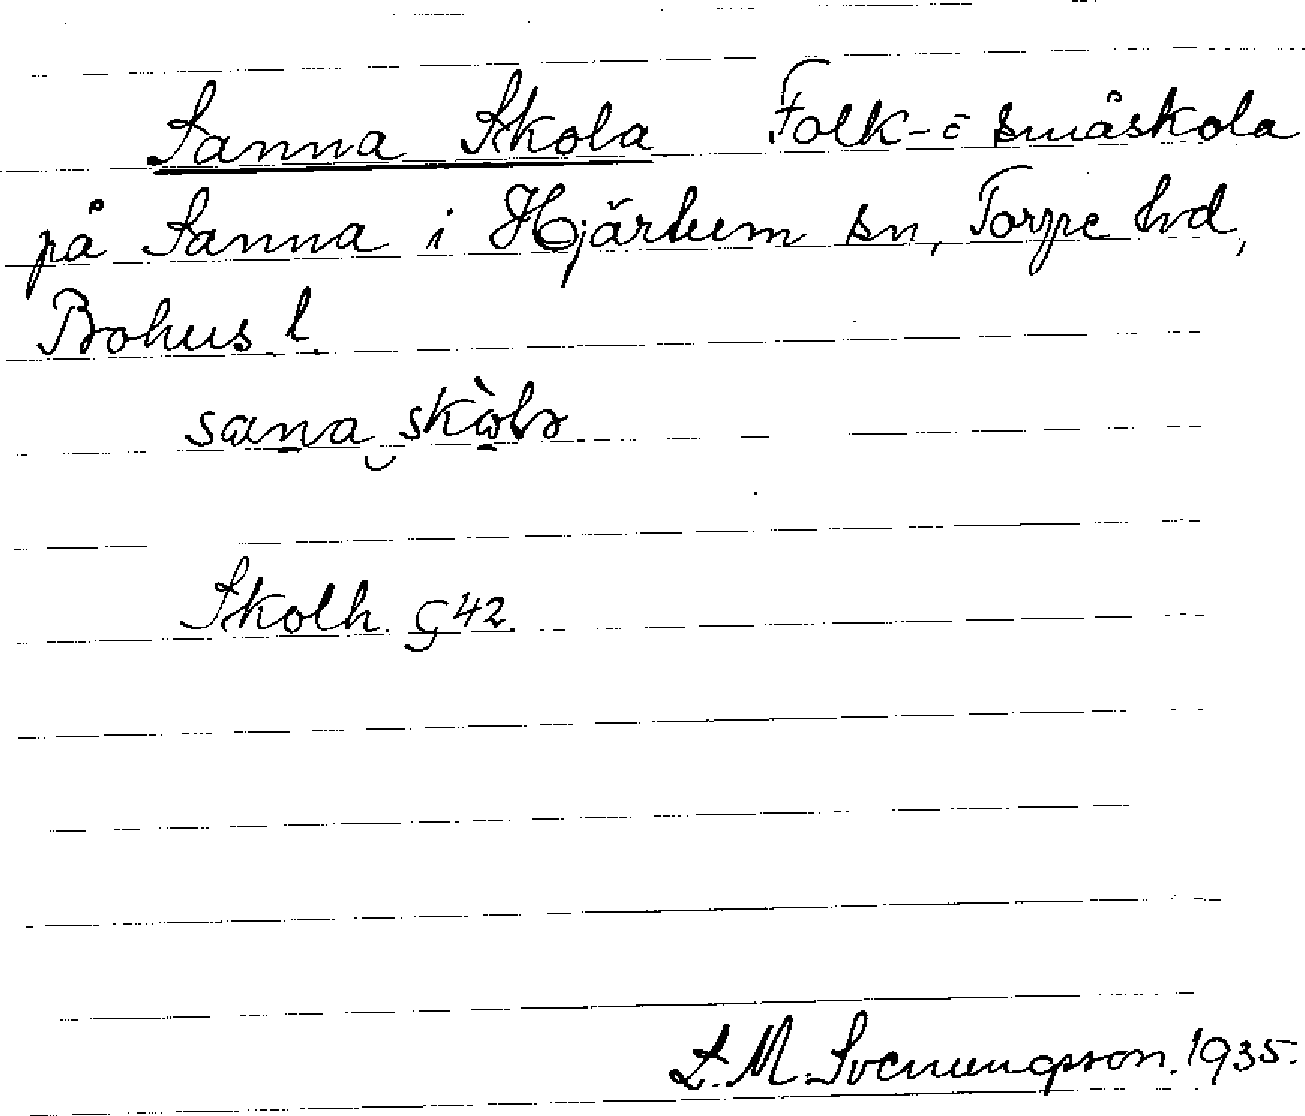 Sanna Skola Folk- o småskola
på Sanna i Hjärtum sn, Torpe hd,
Bohus l.
sana skòla
Skolh. G 42.
L. M. Svenungsson. 1935.